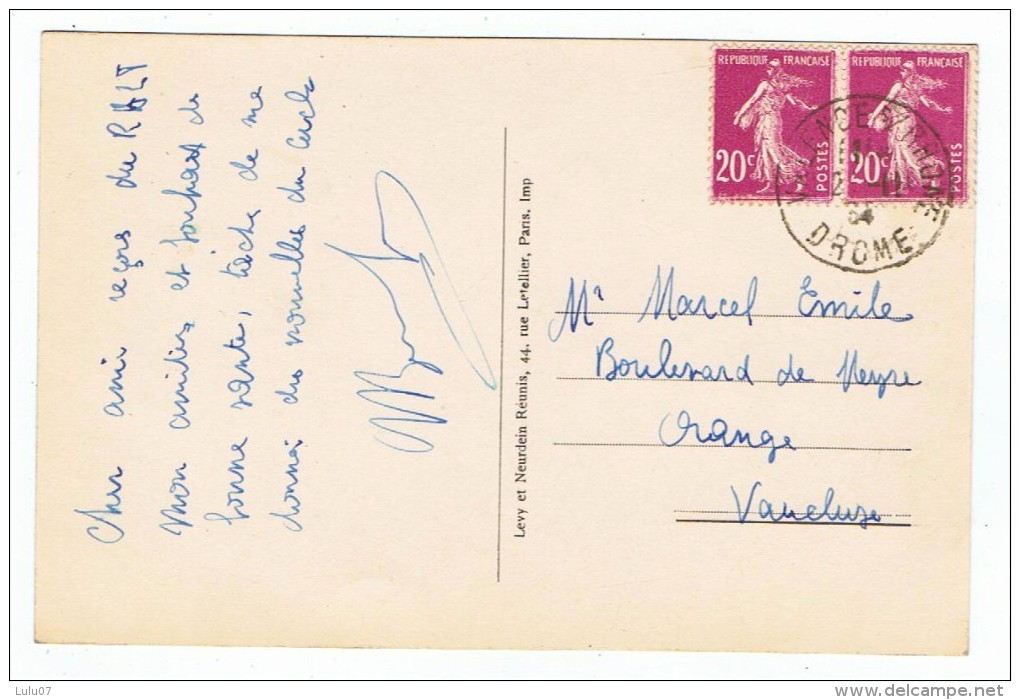 REPUBLIQUE FRANÇAISE
20c
POSTES
REPUBLIQUE FRANÇAISE
20c
POSTES
VALENCE S/ RHONE
DROME
Cher ami reçois du
mon amitiés et souhait de
bonne santé, tâche de me
donné des nouvelles du
Levy et Neurdein Réunis, 44, rue Letellier, Paris. Imp
Mr Marcel Emile
Boulevard de Meyre
Orange
Vaucluse
Lulu07
www.delcampe.net